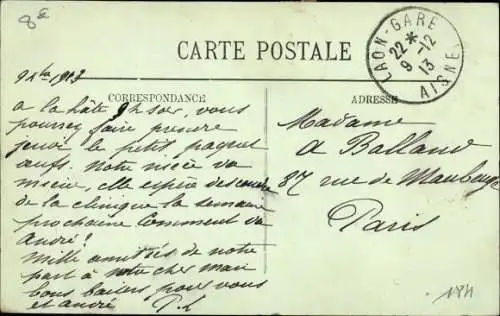 8E
CARTE POSTALE
LAON-GARE
22 *
9-12
13
AISNE
9 Xbre 1913
CORRESPONDANCE
a la hâte 9h soir, vous
pourrez faire prendre
jeudi le petit paquet
œufs. Notre nièce va
mieux, elle espère descendre
de la clinique la semaine
prochaine Comment va
André!
Mille amitiés de notre
part à votre cher mari
bons baisers pour vous
et andré P.L
ADRESSE
Madame
A Balland
87 rue de Maubeuge
Paris